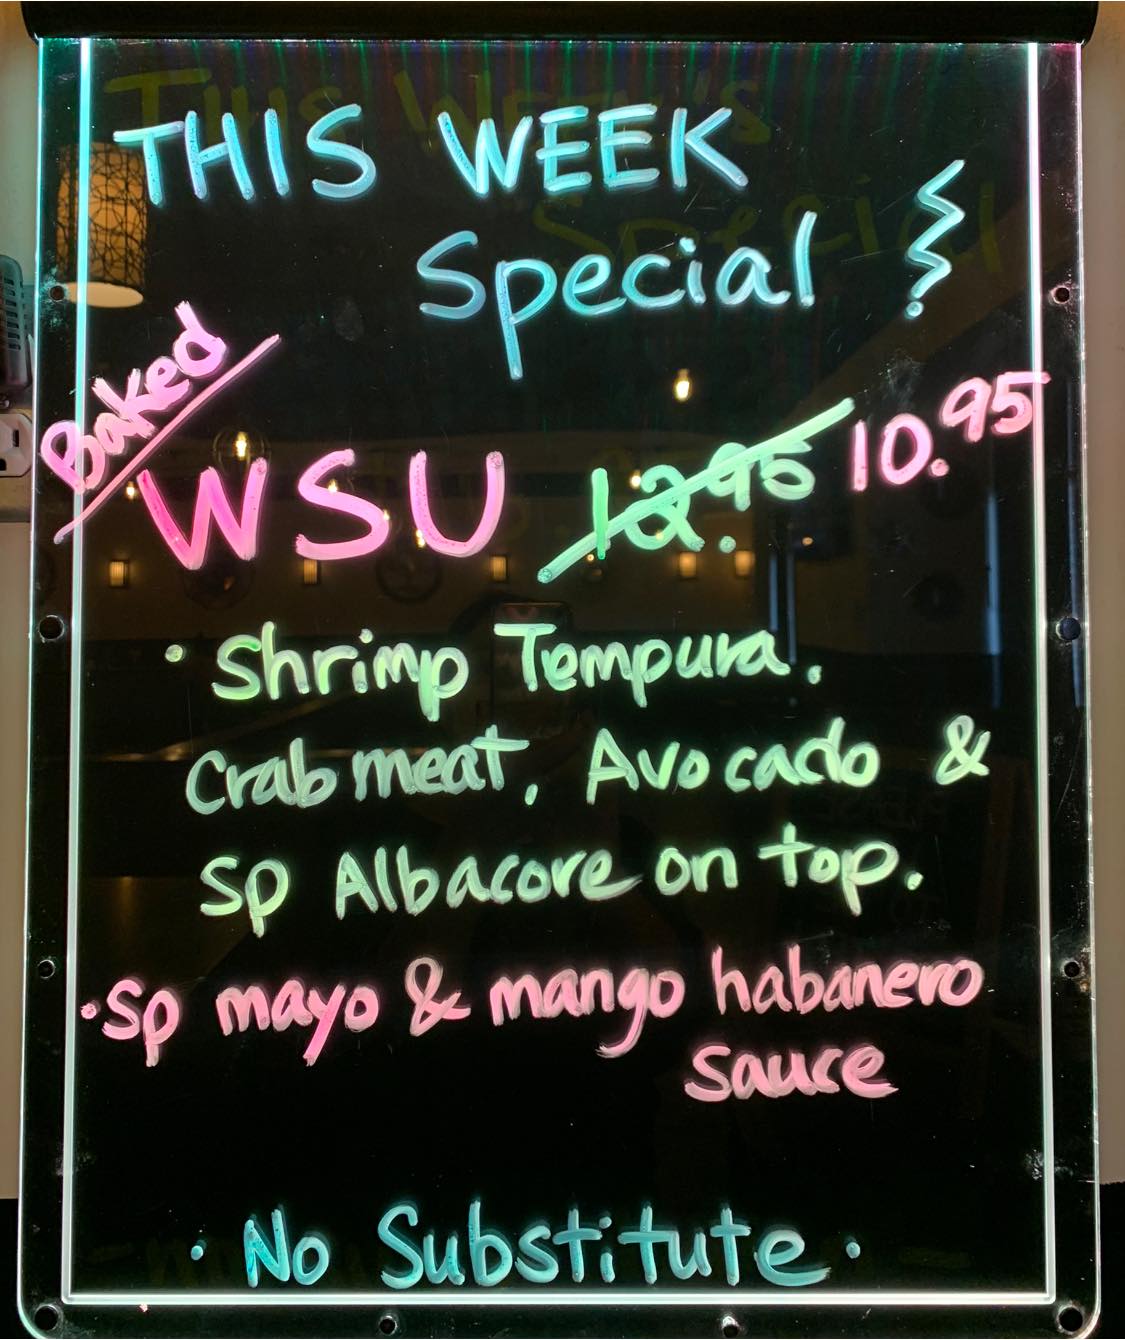 THIS WEEK
Special
Baked
WSU 12.95 10.95
• Shrimp Tempura,
Crab meat, Avocado &
Sp Albacore on top.
• Sp mayo & mango habanero
sauce
• No Substitute •